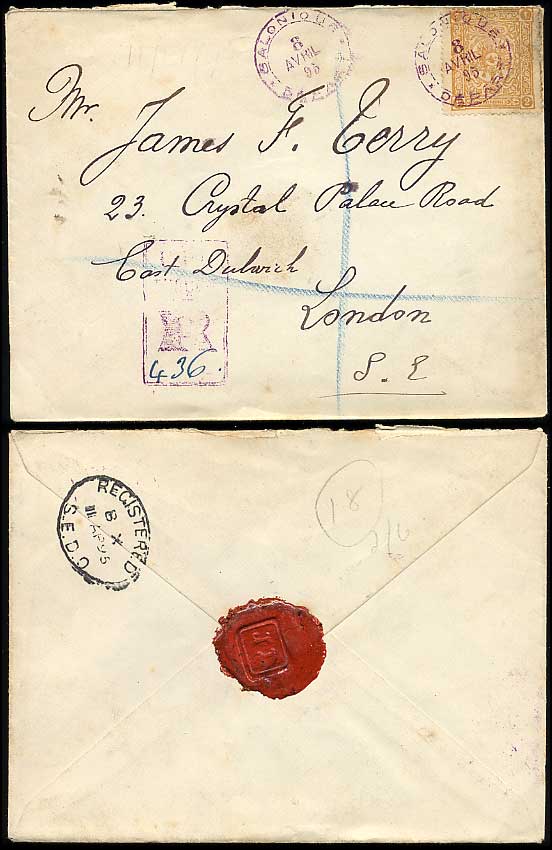 SALONIQUE
8
AVRIL
95
SALONIQUE
8
AVRIL
95
2
Mr. James F. Terry
23. Crystal Palace Road
East Dulwich
London
S. E
R
436.
REGISTERED
B X
11 AP 95
S.E.D.O
18